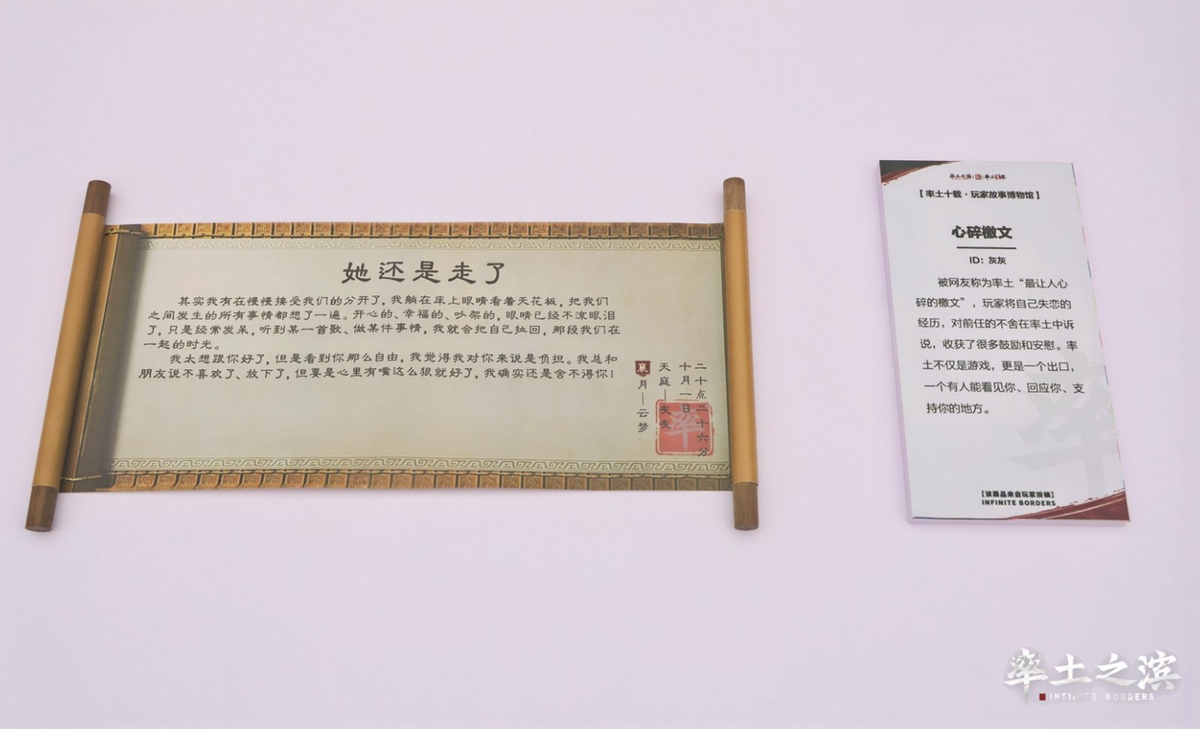 她还是走了
其实我有在慢慢接受我们的分开了,我躺在床上眼睛看着天花板,把我们
之间发生的所有事情都想了一遍。开心的、幸福的、吵架的,眼睛已经不流眼泪
了,只是经常发呆,听到某一首歌、做某件事情,我就会把自己拉回,那段我们在
一起的时光。
我太想跟你好了,但是看到你那么自由,我觉得我对你来说是负担。我总和
朋友说不喜欢了、放下了,但要是心里有嘴这么狠就好了,我确实还是舍不得你!
二十点二十六分
十月一日
天庭—
襄月—云梦
率
率土之滨
【率土十载·玩家故事博物馆】
心碎檄文
ID:灰灰
被网友称为率土“最让人心
碎的檄文”,玩家将自己失恋的
经历,对前任的不舍在率土中诉
说,收获了很多鼓励和安慰。率
土不仅是游戏,更是一个出口,
一个有人能看见你、回应你、支
持你的地方。
【该展品来自玩家投稿】
INFINITE BORDERS
率土之滨
INFINITE BORDERS